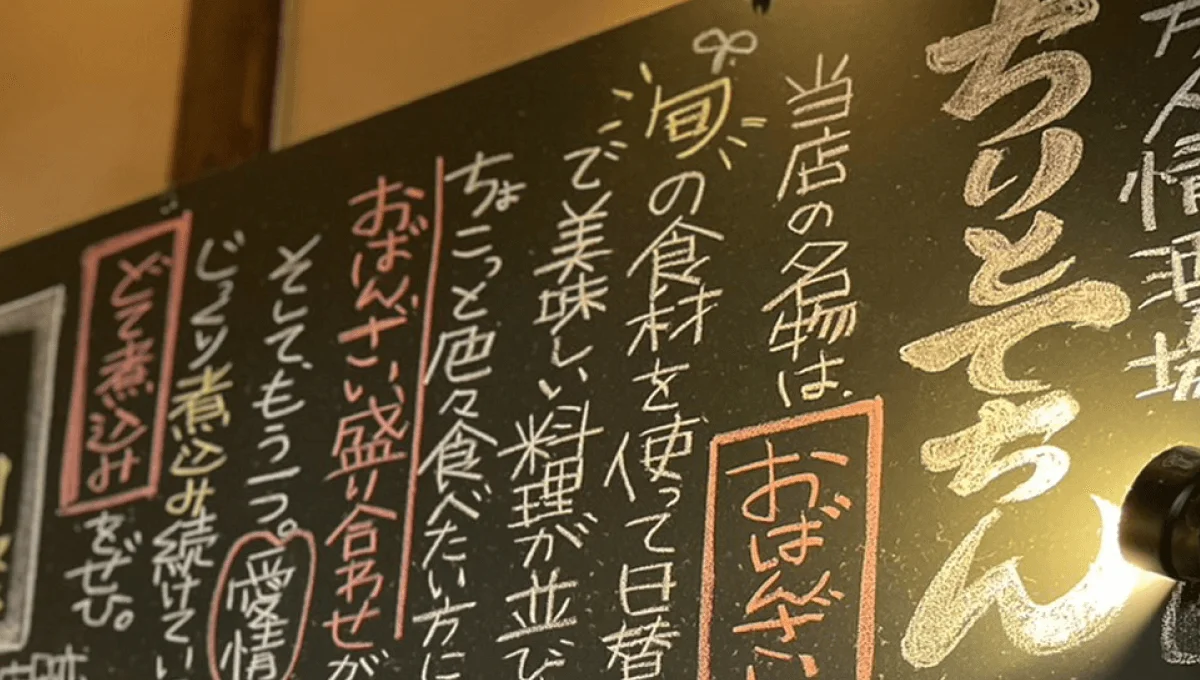 人情酒場
ちりとてちん
当店の名物は、おばんざい
旬の食材を使って日替
で美味しい料理が並び
ちょこっと色々食べたい方に
おばんざい盛り合わせが
そして、もう一つ。愛情
じっくり煮込み続けてい
どて煮込みをぜひ。